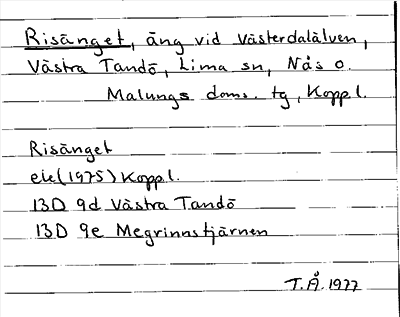 Risänget, äng vid Västerdalälven,
Västra Tandö, Lima sn, Nås o.
Malungs doms. tg, Koppl.
Risänget
ek (1975) Koppl.
13D 9d Västra Tandö
13D 9e Megrinnstjärnen
T.Å. 1977